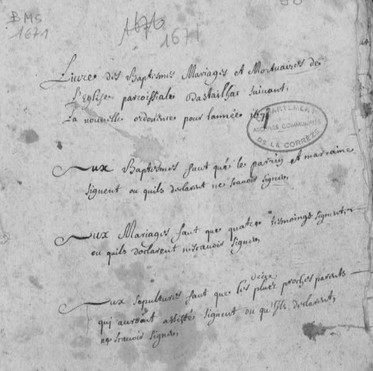 BMS
1671
1676
1671
Livre des Baptismes Mariages et Mortuaires de
L'Eglise parroissiale Dastailhac suivant
La nouvelle ordonnance pour lannée 1671
DEPARTEMENT
ARCHIVES COMMUNALES
DE LA CORREZE
Aux Baptismes faut que le parrin et marraine
signent ou quils declarent ne scavoir signer,
Aux Mariages faut que quatre tesmoings signent
ou quils declarent ne scavoir signer,
Aux sepultures faut que les plus proches parents
qui auront assisté signent ou qu'Ils declarent
ne scavoir signer,